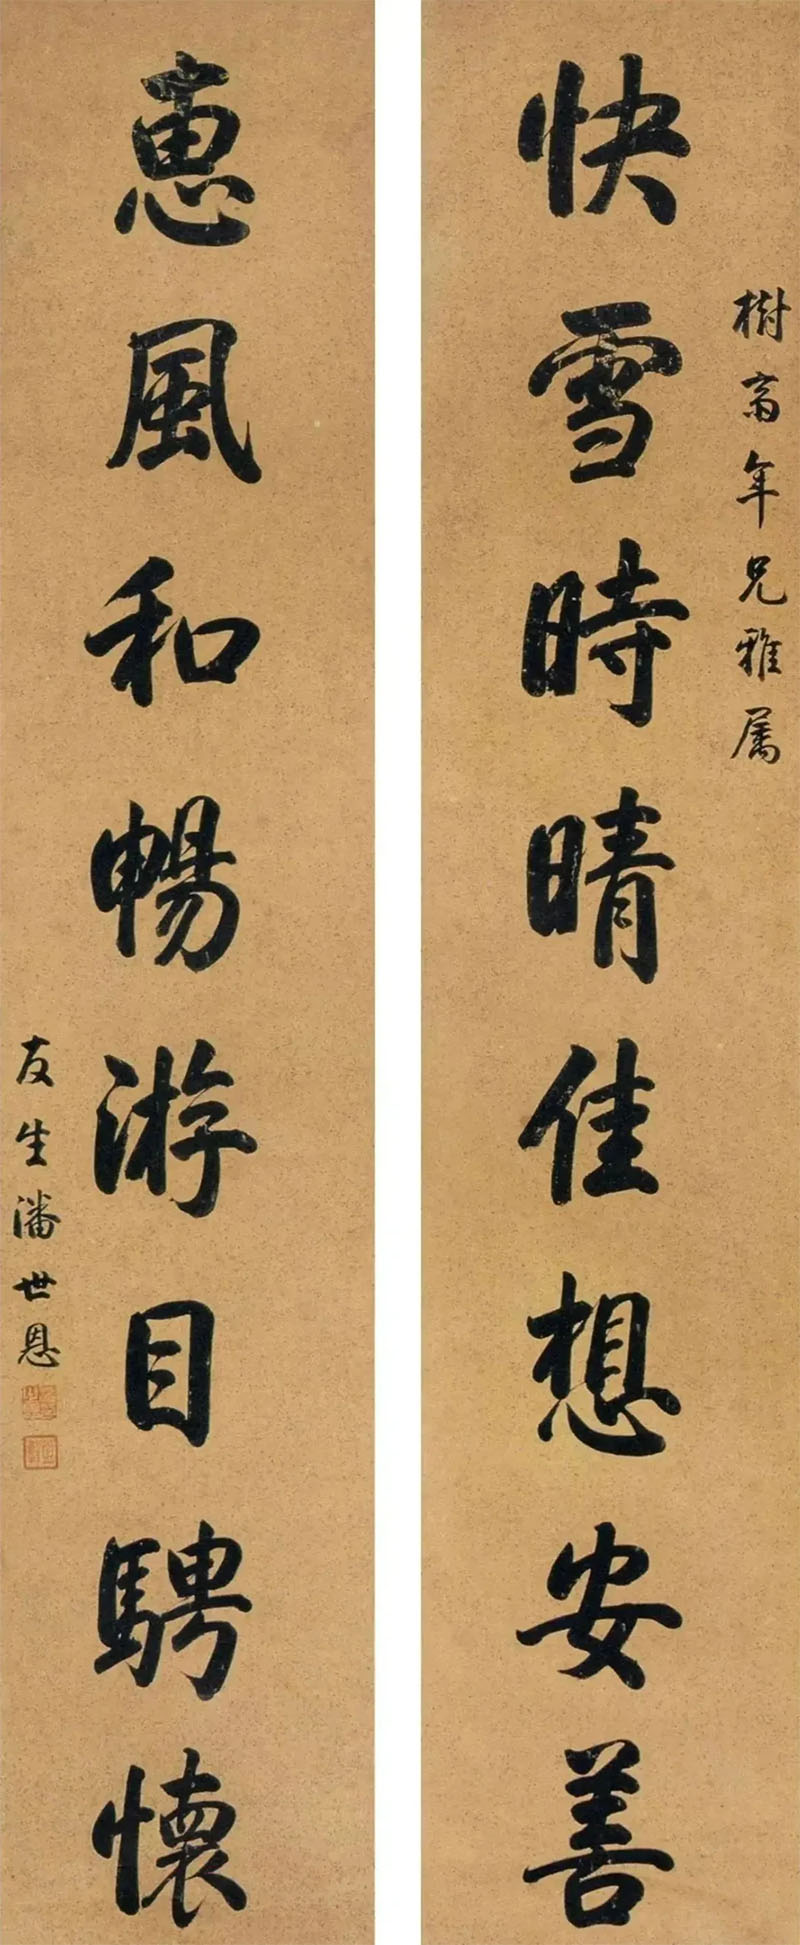 樹斋年兄雅属
快雪時晴佳想安善
惠風和暢游目騁懷
友生潘世恩